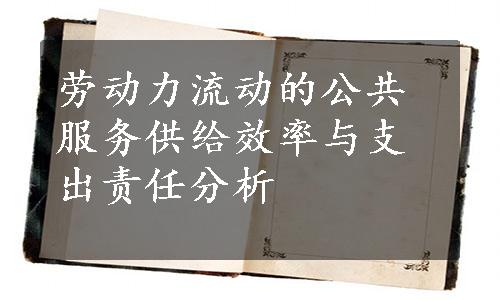 劳动力流动的公共
服务供给效率与支
出责任分析